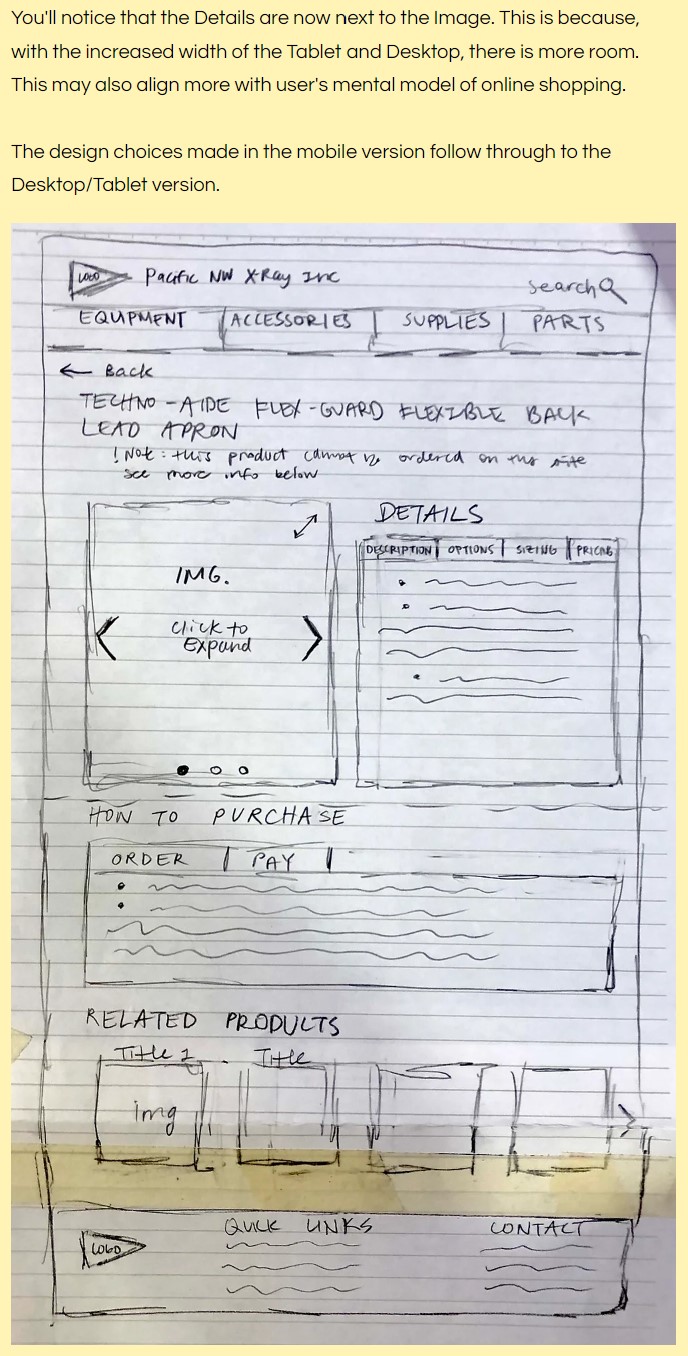 You'll notice that the Details are now next to the Image. This is because,
with the increased width of the Tablet and Desktop, there is more room.
This may also align more with user's mental model of online shopping.
The design choices made in the mobile version follow through to the
Desktop/Tablet version.
LOGO Pacific NW X-Ray Inc
Search
EQUPMENT ACCESSORIES SUPPLIES PARTS
← Back
TECHNO-AIDE FLEX-GUARD FLEXIBLE BACK
LEAD APRON
! Note: this product cannot be ordered on this site
see more info below
DETAILS
DESCRIPTION OPTIONS SIZING PRICING
IMG.
Click to
Expand
HOW TO PURCHASE
ORDER PAY
RELATED PRODUCTS
Title 1 Title
img
QUICK LINKS CONTACT
LOGO